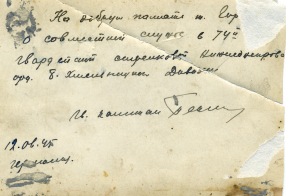 На добрую память т. Гор
о совместной службе в 74й
гвардейской стрелковой Нижнеднепровс
орд. Б. Хмельницкого Дивизии
Гв. капитан
12.08.45
Германия.